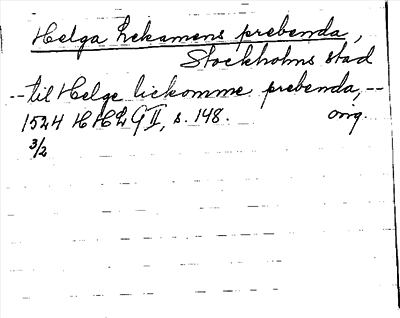 Helga Lekamens prebenda,
Stockholms stad
-- til Helge liekomme prebenda, --
1524 HHLG II, s. 148. orig.
3/2